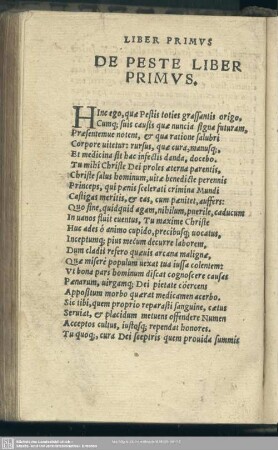 LIBER PRIMVS
DE PESTE LIBER
PRIMVS.
HInc ego, quæ Pestis toties grassantis origo,
Cumq; suis causis quæ nuncia signa futuram,
Præsentemue notent, & qua ratione salubri
Corpore uitetur: rursus, qua cura, manusq́,
Et medicina sit hac infectis danda, docebo.
Tu mihi Christe Dei proles æterna parentis,
Christe salus hominum, uitæ benedicte perennis
Princeps, qui panis scelerati crimina Mundi
Castigas meritis, & eas, cum pœnitet, auffers:
Quo sine, quidquid agam, nihilum, puerile, caducum
In uanos fluit euentus, Tu maxime Christe
Huc ades ô animo cupido, precibusq; uocatus,
Inceptumq; pius mecum decurre laborem,
Dum cladis refero quæuis arcana maligna,
Qua misere populum uexat tua iussa colentem:
Vt bona pars hominum discat cognoscere causas
Pœnarum, uirgamq; Dei pietate coërcens
Appositum morbo quærat medicamen acerbo.
Sic tibi, quem proprio reparasti sanguine, cœtus
Seruiat, & placidum metuens offendere Numen
Acceptos cultus, iustosq; rependat honores.
Tu quoq;, cura Dei sceptris quem prouida summis